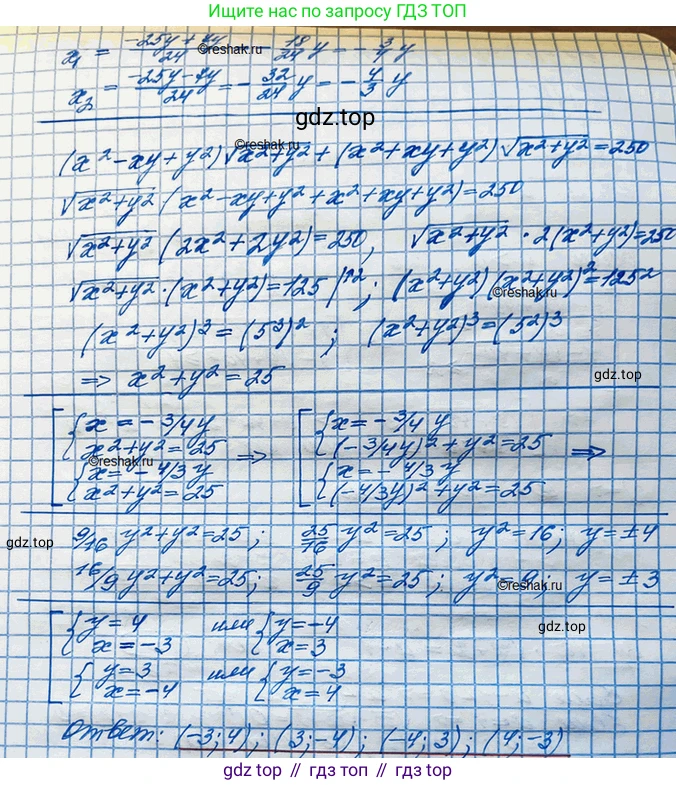 Ищите нас по запросу ГДЗ ТОП
x₁ = (-25y + 7y)/24 = -18/24 y = -3/4 y
©reshak.ru
x₂ = (-25y - 7y)/24 = -32/24 y = -4/3 y
gdz.top
©reshak.ru
(x² - xy + y²) √(x² + y²) + (x² + xy + y²) √(x² + y²) = 250
√(x² + y²) (x² - xy + y² + x² + xy + y²) = 250
√(x² + y²) (2x² + 2y²) = 250, √(x² + y²) · 2(x² + y²) = 250
√(x² + y²) · (x² + y²) = 125 |^2 ; (x² + y²) (x² + y²)² = 125²
©reshak.ru
(x² + y²)³ = (5³)² ; (x² + y²)³ = (5²)³
=> x² + y² = 25
gdz.top
[ { x = -3/4 y => [ { x = -3/4 y
x² + y² = 25 (-3/4 y)² + y² = 25 =>
©reshak.ru
{ x = -4/3 y { x = -4/3 y
x² + y² = 25 (-4/3 y)² + y² = 25
9/16 y² + y² = 25 ; 25/16 y² = 25 ; y² = 16 ; y = ±4
gdz.top
16/9 y² + y² = 25 ; 25/9 y² = 25 ; y² = 9 ; y = ±3
©reshak.ru
[ { y = 4 или { y = -4
x = -3 x = 3
gdz.top
{ y = 3 или { y = -3
x = -4 x = 4
Ответ: (-3; 4) ; (3; -4) ; (-4; 3) ; (4; -3)
gdz.top // гдз топ // gdz.top